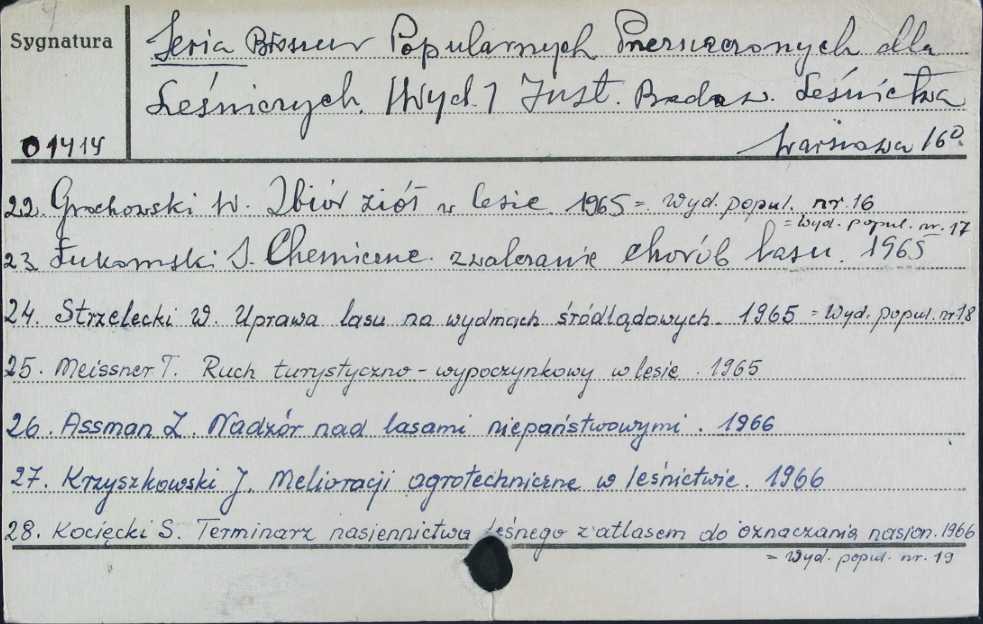 Sygnatura
Seria Broszur Popularnych Przeznaczonych dla
Leśniczych. [Wyd.] Inst. Badaw. Leśnictwa
01414 Warszawa 16°
22. Grochowski W. Zbiór ziół w lesie. 1965 = Wyd. popul. nr. 16
= Wyd. popul. nr. 17
23 Łukomski S. Chemiczne zwalczanie chorób lasu. 1965
24. Strzelecki W. Uprawa lasu na wydmach śródlądowych. 1965 = Wyd. popul. nr 18
25. Meissner T. Ruch turystyczno-wypoczynkowy w lesie. 1965
26. Assman Z. Nadzór nad lasami niepaństwowymi. 1966
27. Krzyszkowski J. Melioracji agrotechniczne w leśnictwie. 1966
28. Kocięcki S. Terminarz nasiennictwa leśnego z atlasem do oznaczania nasion. 1966
= Wyd. popul. nr. 19